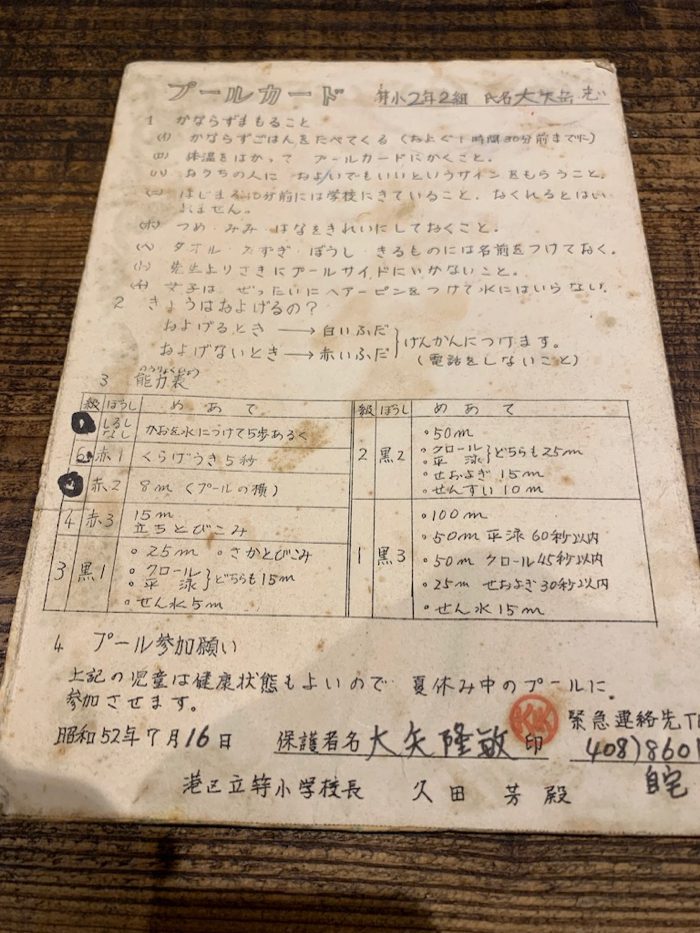 プールカード 笄小2年2組 氏名 大矢岳志
1 かならずまもること
(イ) かならずごはんをたべてくる (およぐ1時間30分前までに)
(ロ) 体温をはかって プールカードにかくこと。
(ハ) おうちの人に およいでもいいというサインをもらうこと。
(ニ) はじまる10分前には学校にきていること。おくれるとはい
れません。
(ホ) つめ・みみ・はなをきれいにしておくこと。
(ヘ) タオル・みずぎ・ぼうし・きるものには名前をつけておく。
(ト) 先生よりさきにプールサイドにいかないこと。
(チ) 女子は ぜったいにヘアーピンをつけて水にはいらない。
2 きょうはおよげるの?
およげるとき → 白いふだ
およげないとき → 赤いふだ
げんかんにつけます。
(電話をしないこと)
3 能力表
級 ぼうし めあて
しるしなし かおを水につけて5歩あるく
6 赤1 くらげうき5秒
赤2 8m (プールの横)
4 赤3 15m
立ちとびこみ
3 黒1 ・25m ・さかとびこみ
・クロール
・平泳 どちらも15m
・せん水5m
級 ぼうし めあて
2 黒2 ・50m
・クロール
・平泳 どちらも25m
・せおよぎ 15m
・せんすい 10m
1 黒3 ・100m
・50m 平泳 60秒以内
・50m クロール 45秒以内
・25m せおよぎ 30秒以内
・せん水 15m
4 プール参加願い
上記の児童は健康状態もよいので 夏休み中のプールに
参加させます。
昭和52年7月16日 保護者名 大矢隆敏 印
緊急連絡先
408)8601
自宅
港区立笄小学校長 久田 芳 殿